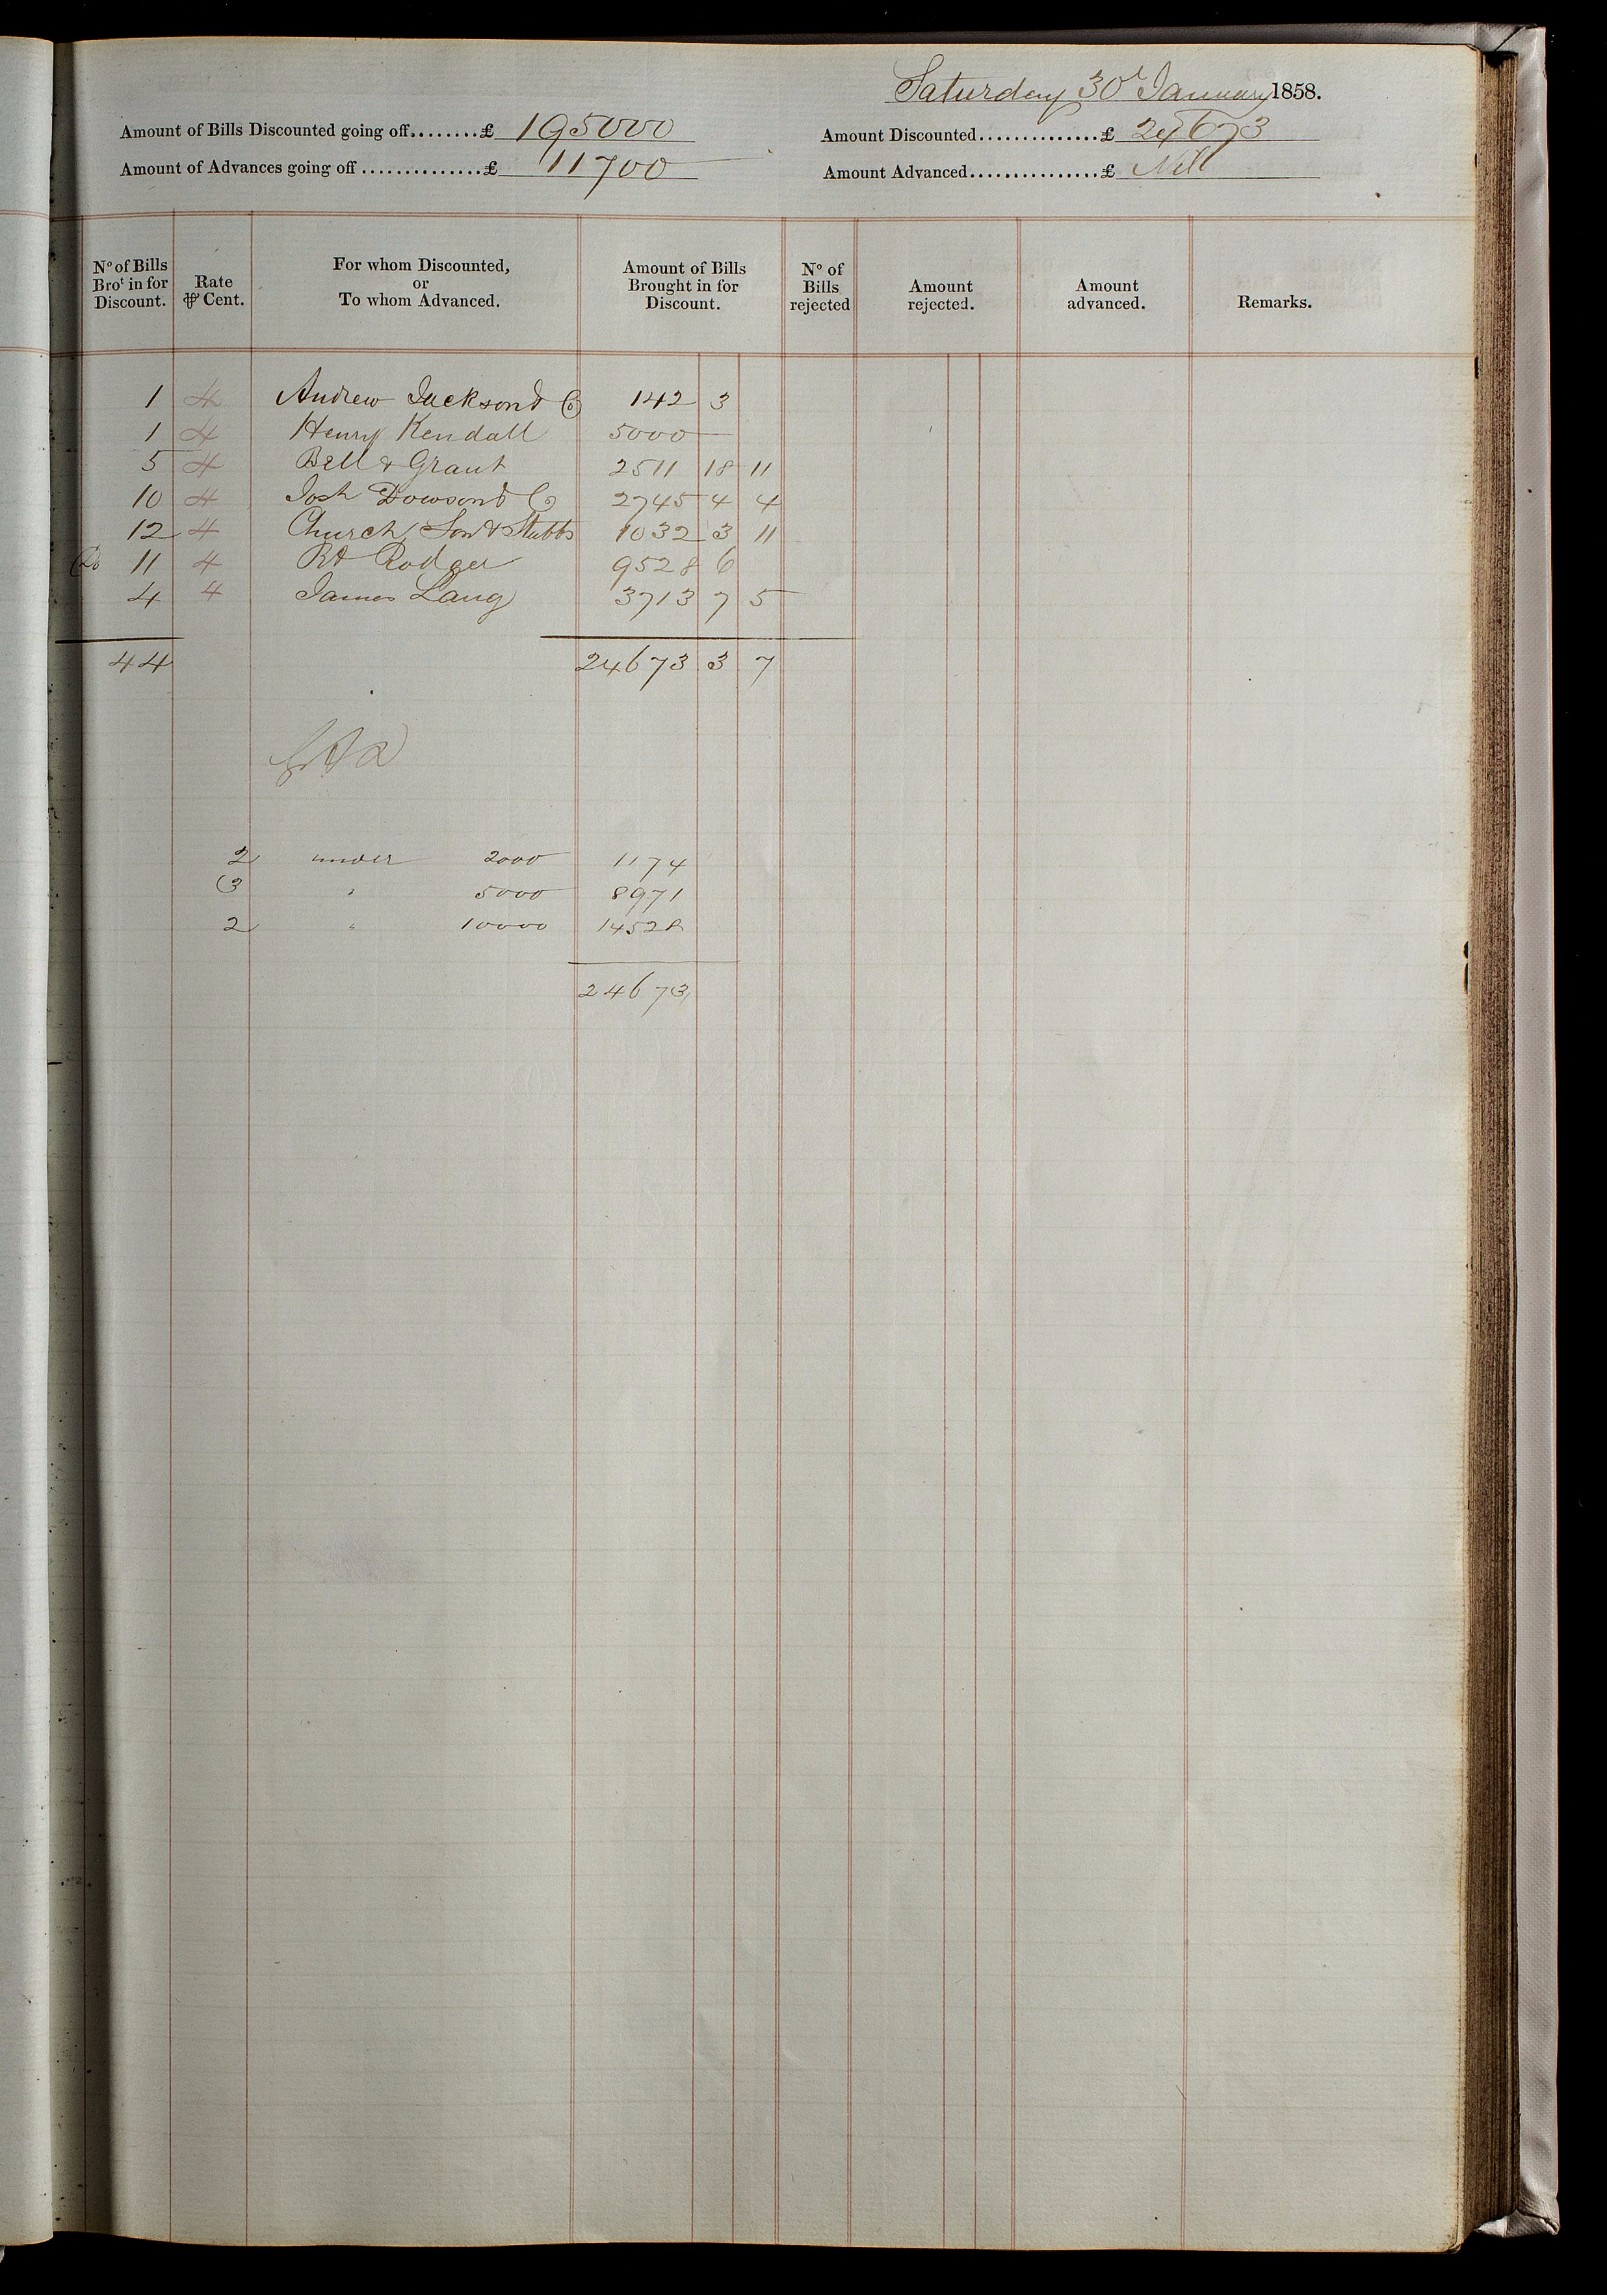 Saturday 30th January 1858.
Amount of Bills Discounted going off........£ 195000
Amount Discounted..............£ 24673
Amount of Advances going off ..............£ 11700
Amount Advanced...............£ Nill
No of Bills Brot in for Discount. | Rate ⅌ Cent. | For whom Discounted, or To whom Advanced. | Amount of Bills Brought in for Discount. | No of Bills rejected | Amount rejected. | Amount advanced. | Remarks.
1 4 Andrew Jackson & Co 142 3
1 4 Henry Kendall 5000
5 4 Bell & Grant 2511 18 11
10 4 Josh Dowson & Co 2745 4 4
12 4 Church, Son & Stubbs 1032 3 11
11 4 Rt Rodger 9528 6
4 4 James Lang 3713 7 5
44 24673 3 7
2 under 2000 1174
3 " 5000 8971
2 " 10000 14528
24673